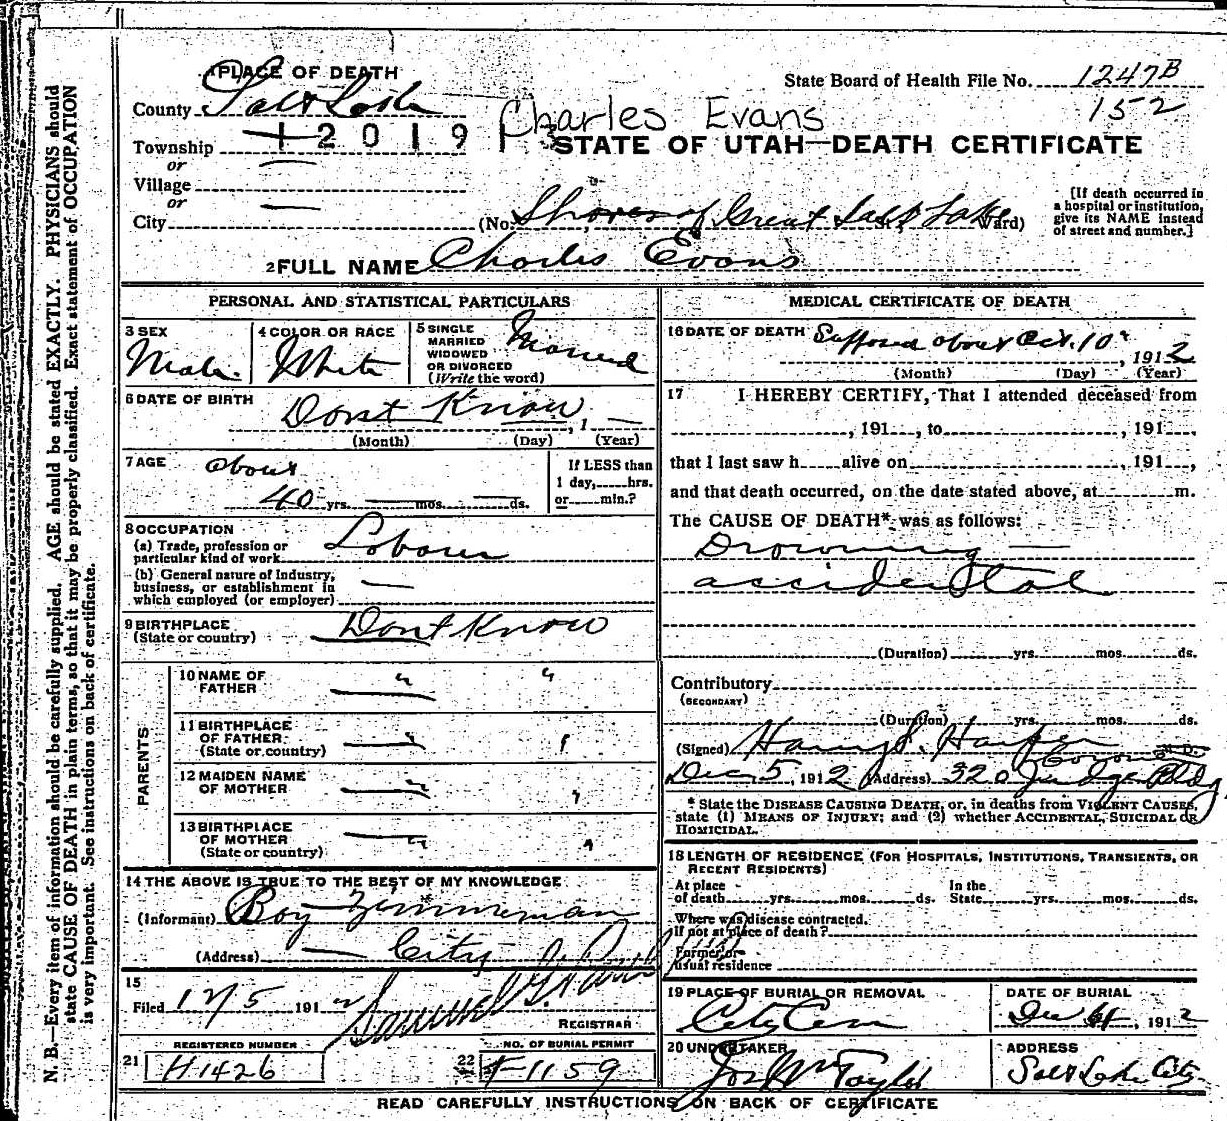 1 PLACE OF DEATH
State Board of Health File No. 1247B
County Salt Lake
152
Charles Evans
12019
Township
or
STATE OF UTAH—DEATH CERTIFICATE
Village
or
City
(No. Shores of Great Salt Lake St., Ward)
[If death occurred in
a hospital or institution,
give its NAME instead
of street and number.]
2 FULL NAME Charles Evans
PERSONAL AND STATISTICAL PARTICULARS
3 SEX
Male
4 COLOR OR RACE
White
5 SINGLE
MARRIED
WIDOWED
OR DIVORCED
(Write the word)
Married
6 DATE OF BIRTH
Dont Know, 1
(Month) (Day) (Year)
7 AGE
about
40 yrs. mos. ds.
If LESS than
1 day, hrs.
or min.?
8 OCCUPATION
(a) Trade, profession or
particular kind of work Laborer
(b) General nature of Industry,
business, or establishment in
which employed (or employer)
9 BIRTHPLACE
(State or country) Dont Know
PARENTS
10 NAME OF
FATHER " "
11 BIRTHPLACE
OF FATHER
(State or country) " "
12 MAIDEN NAME
OF MOTHER " "
13 BIRTHPLACE
OF MOTHER
(State or country) " "
14 THE ABOVE IS TRUE TO THE BEST OF MY KNOWLEDGE
(Informant) Roy Zimmerman
(Address) City
15
Filed 12/5 1912 Samuel G. Paul
REGISTRAR
REGISTERED NUMBER
21 H1426
NO. OF BURIAL PERMIT
22 1159
MEDICAL CERTIFICATE OF DEATH
16 DATE OF DEATH Supposed about Oct. 10, 1912
(Month) (Day) (Year)
17 I HEREBY CERTIFY, That I attended deceased from
, 191 , to , 191 ,
that I last saw h alive on , 191 ,
and that death occurred, on the date stated above, at m.
The CAUSE OF DEATH* was as follows:
Drowning
accidental
(Duration) yrs. mos. ds.
Contributory
(SECONDARY)
(Duration) yrs. mos. ds.
(Signed) Harry S. Harper M. D.
Coroner
Dec 5, 1912 (Address) 320 Judge Bldg
* State the DISEASE CAUSING DEATH, or, in deaths from VIOLENT CAUSES,
state (1) MEANS OF INJURY; and (2) whether ACCIDENTAL, SUICIDAL OR
HOMICIDAL.
18 LENGTH OF RESIDENCE (FOR HOSPITALS, INSTITUTIONS, TRANSIENTS, OR
RECENT RESIDENTS)
At place
of death yrs. mos. ds.
In the
State yrs. mos. ds.
Where was disease contracted.
If not at place of death?
Former or
usual residence
19 PLACE OF BURIAL OR REMOVAL
City Cem
DATE OF BURIAL
Dec 6, 1912
20 UNDERTAKER
Jos Wm Taylor
ADDRESS
Salt Lake City
READ CAREFULLY INSTRUCTIONS ON BACK OF CERTIFICATE
N. B.—Every item of information should be carefully supplied. AGE should be stated EXACTLY. PHYSICIANS should
state CAUSE OF DEATH in plain terms, so that it may be properly classified. Exact statement of OCCUPATION
is very important. See instructions on back of certificate.